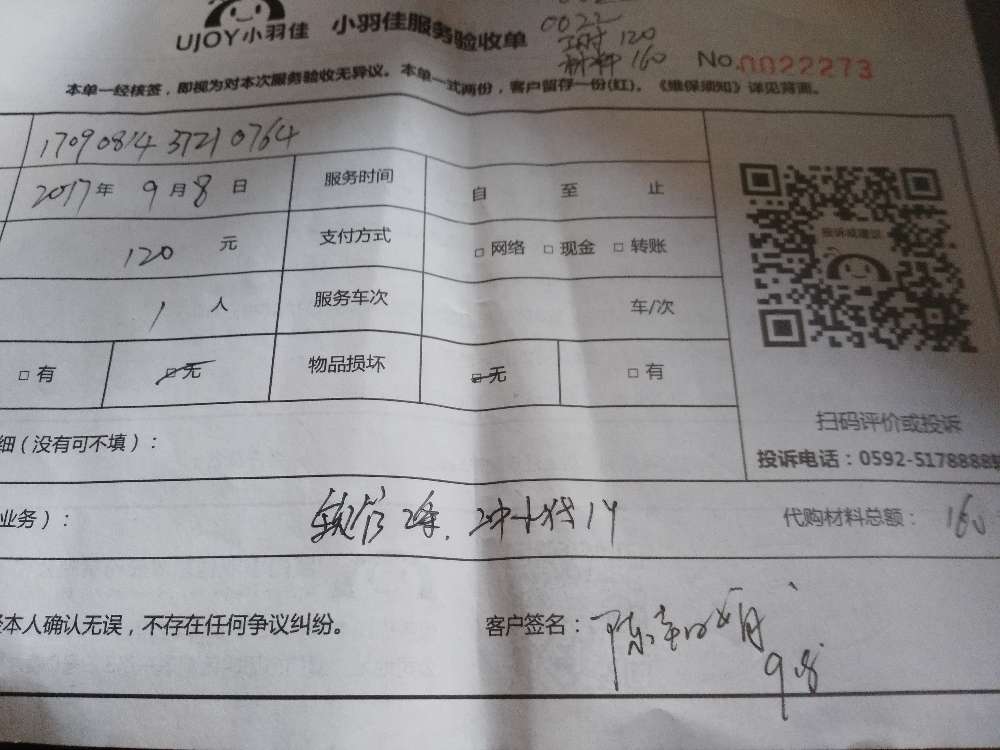 UJOY小羽佳 小羽佳服务验收单
0022
工时 120
材料 160
No.0022273
本单一经核签，即视为对本次服务验收无异议。本单一式两份，客户留存一份(红)。《维保须知》详见背面。
17090814 37210764
2017年 9月8日 服务时间 自 至 止
120 元 支付方式 □ 网络 □ 现金 □ 转账
1 人 服务车次 车/次
□ 有 □ 无 物品损坏 □ 无 □ 有
投诉或建议
扫码评价或投诉
投诉电话：0592-5178888
细（没有可不填）：
业务）： 软管2条. 代购材料总额： 160
本人确认无误，不存在任何争议纠纷。 客户签名： 陈
9.8